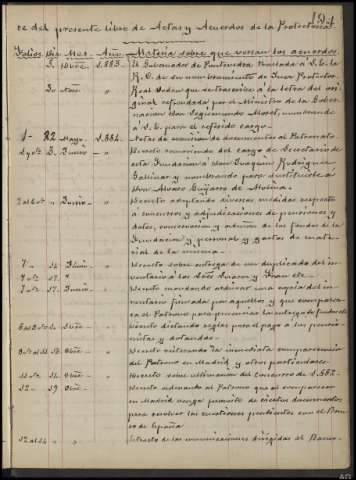 ce del presente libro de Actas y Acuerdos de la Protectoria
Folios Dia Mes. Año. Materia sobre que versan los acuerdos.
3. 1.883. El Gobernador de Pontevedra traslada a S. E. la
R. O. de su nombramiento de Juez Protector
Real Orden que se transcribe a la letra del ori-
ginal refrendada por el Ministro de la Gober-
nacion Don Segismundo Moret, nombrando
a S. E. para el referido cargo.
1- 22 Mayo. 1.884. Actas de sesion de documentos de Patronato
2. Junio " Decreto removiendo del cargo de Secretario de
esta fundacion a Don Joaquin Rodriguez
Gallinar y nombrando para sustituirle a
Don Alvaro Guijarro de Molina.
" Junio " Decreto adoptando diversas medidas respecto
a concursos y adjudicaciones de pensiones y
dotes, conservacion y de los fondos de la
Fundacion y personal y gastos de mate-
rial de la misma.
7- " Decreto sobre entrega de un duplicado del in-
ventario a los Sres. Suarez y
7 17. Junio " Decreto mandando archivar una copia del in-
ventario firmada por aquellos y que comparez-
ca el Patrono para presenciar la entrega de fondos etc.
" Decreto dictando reglas para el pago a los pensio-
nistas y dotandas.
" Decreto reiterando la inmediata comparecencia
del Patrono en Madrid y otros particulares.
" Decreto sobre ultimacion del concurso de 1.882.
12- 29 " Decreto ordenando al Patrono que al comparecer
en Madrid venga provisto de ciertos documentos
para resolver las cuestiones pendientes con el Ban-
co de España.
12 al 14 " " Extracto de las comunicaciones dirigidas al Banco.